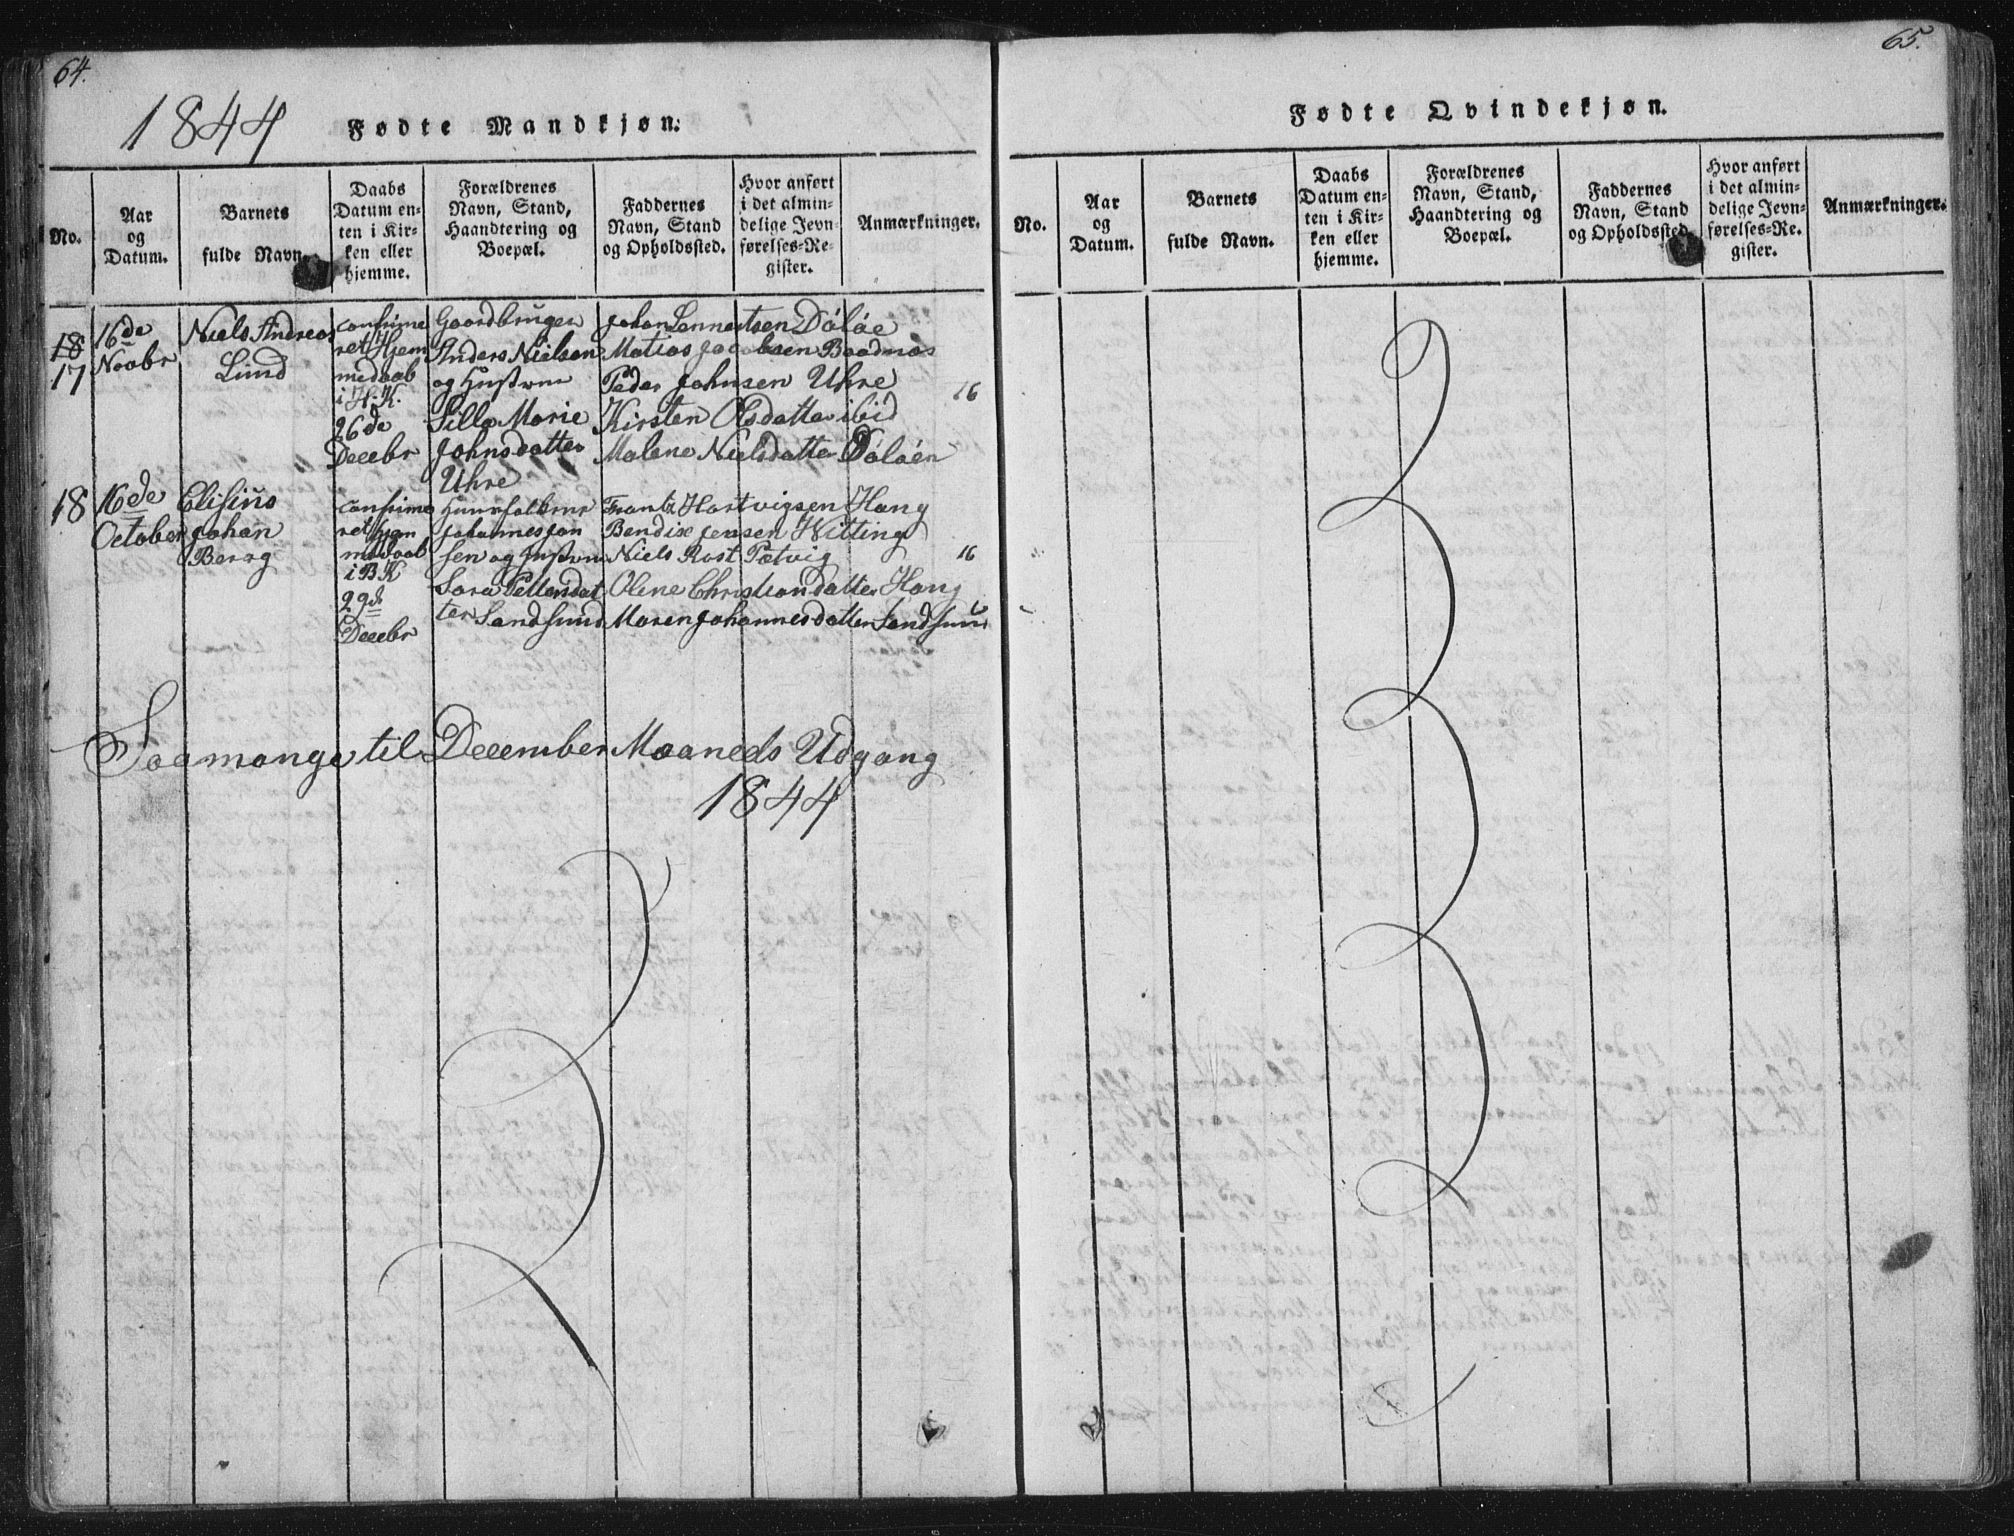 64.
1844 Fødte Mandkjøn.
No.
Aar
og
Datum.
Barnets
fulde Navn.
Daabs
Datum en-
ten i Kir-
ken eller
hjemme.
Forældrenes
Navn, Stand,
Haandtering og
Boepæl.
Faddernes
Navn, Stand
og Opholdssted.
Hvor anført
i det almin-
delige Jevn-
førelses-Re-
gister.
Anmærkninger.
18
17
16de
Novbr
Niels Andreas
Lund
confirme
ret Hjem
medaab
i H.K.
26de
Decebr
Gaardbruger
Anders Nielsen
og Hustrue
Silla Marie
Johnsdatter
Uhre
Johan Lennertsen Döløe
Matias Jacobsen Baadnæs
Peder Johnsen Uhre
Kirsten Olsdatter ibid
Malene Nielsdatter Döløen
16
18
16de
October
Elisius
Johan
Berg
confirme
ret hjem
medaab
i BK
29de
Decebr
Huusfolkene
Johannes Jon
sen og Hustrue
Sara Pettersdat
ter Sandsund
Frantz Hartvigsen Haug
Bendix Jensen Witting
Niels Rost Petvig
Olene Christiandatter Haug
Maren Johannesdatter Sandsund
16
Saamange til December Maaneds Udgang
1844
65.
Fødte Qvindekjøn.
No.
Aar
og
Datum.
Barnets
fulde Navn.
Daabs
Datum en-
ten i Kir-
ken eller
hjemme.
Forældrenes
Navn, Stand,
Haandtering og
Boepæl.
Faddernes
Navn, Stand
og Opholdssted.
Hvor anført
i det almin-
delige Jevn-
førelses-Re-
gister.
Anmærkninger.